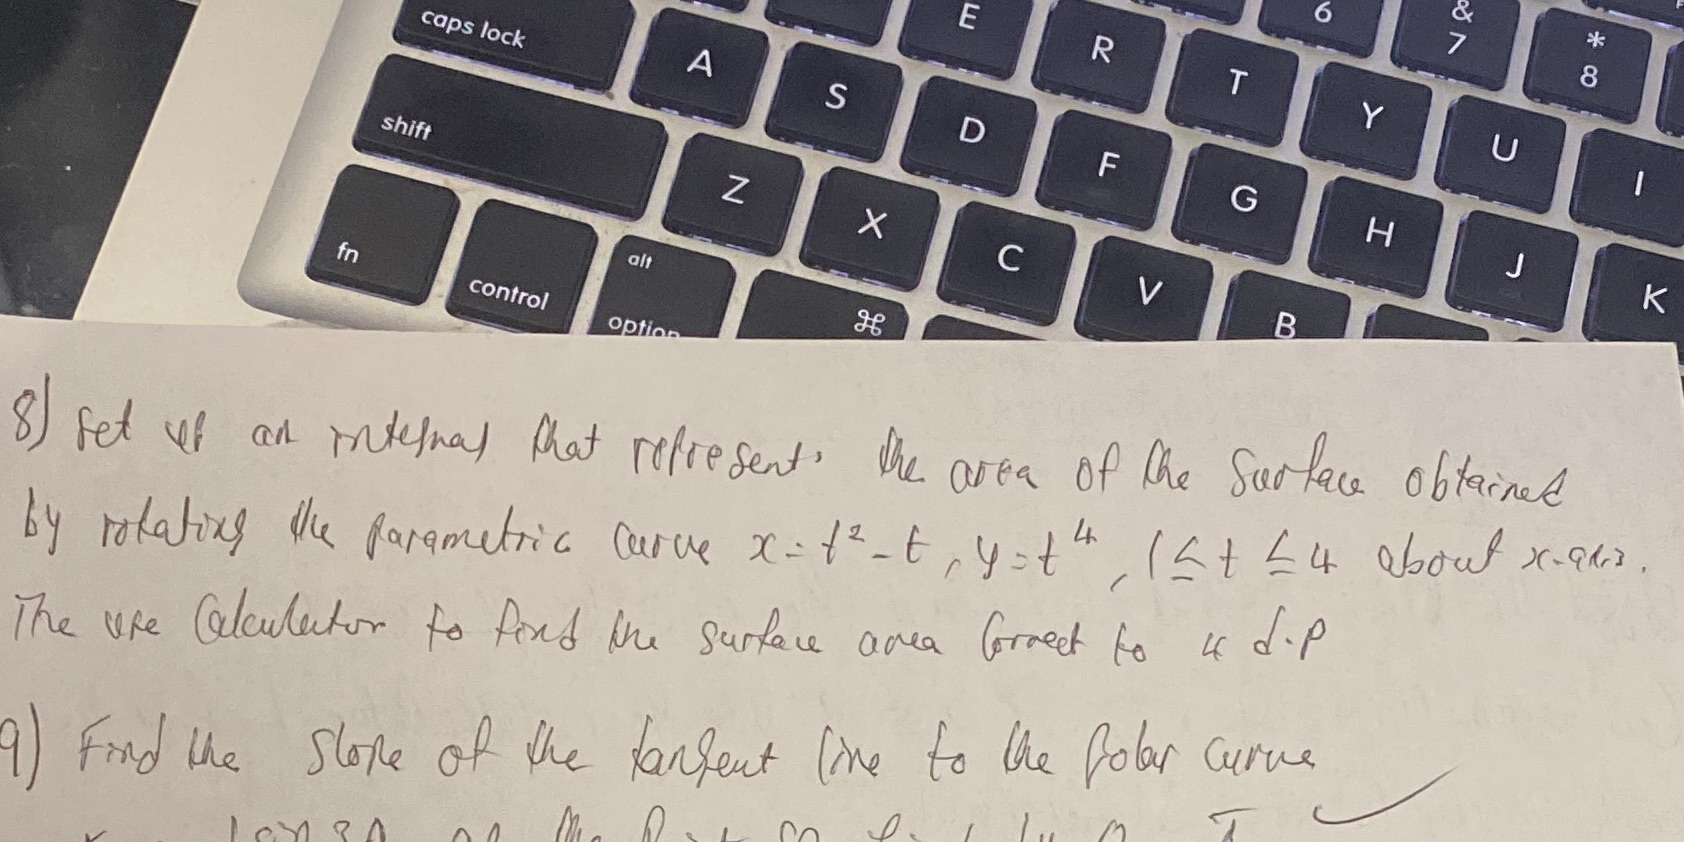 E
6
&
7
*
8
caps lock
A
S
D
R
T
Y
U
I
shift
Z
X
F
G
H
J
K
fn
control
alt
option
⌘
C
V
B
8) Set up an integral that represents the area of the surface obtained
by rotating the parametric curve x = t² - t, y = t⁴, 1 ≤ t ≤ 4 about x-axis.
The use Calculator to find the surface area Correct to 4 d.p
9) Find the slope of the tangent line to the polar curve